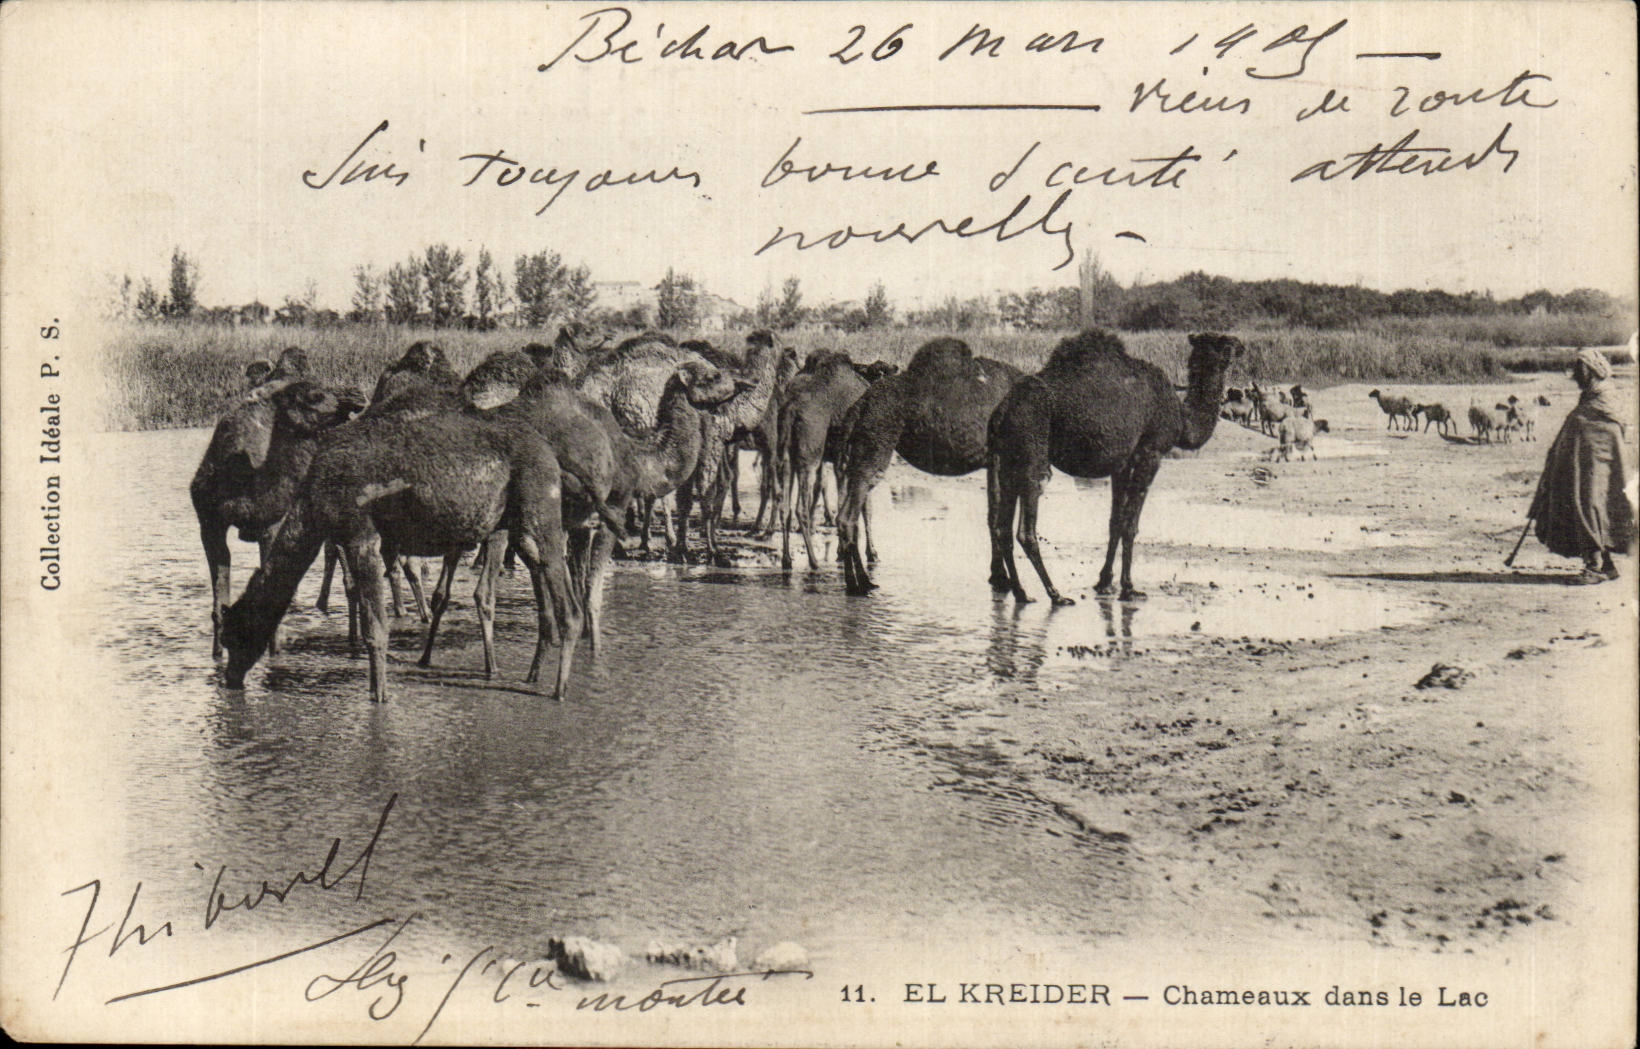 Béchar 26 Mars 1905 —
— viens de route
Suis toujours bonne santé attends
nouvelles -
Collection Idéale P. S.
Thiboult
Cie montée
11. EL KREIDER — Chameaux dans le Lac